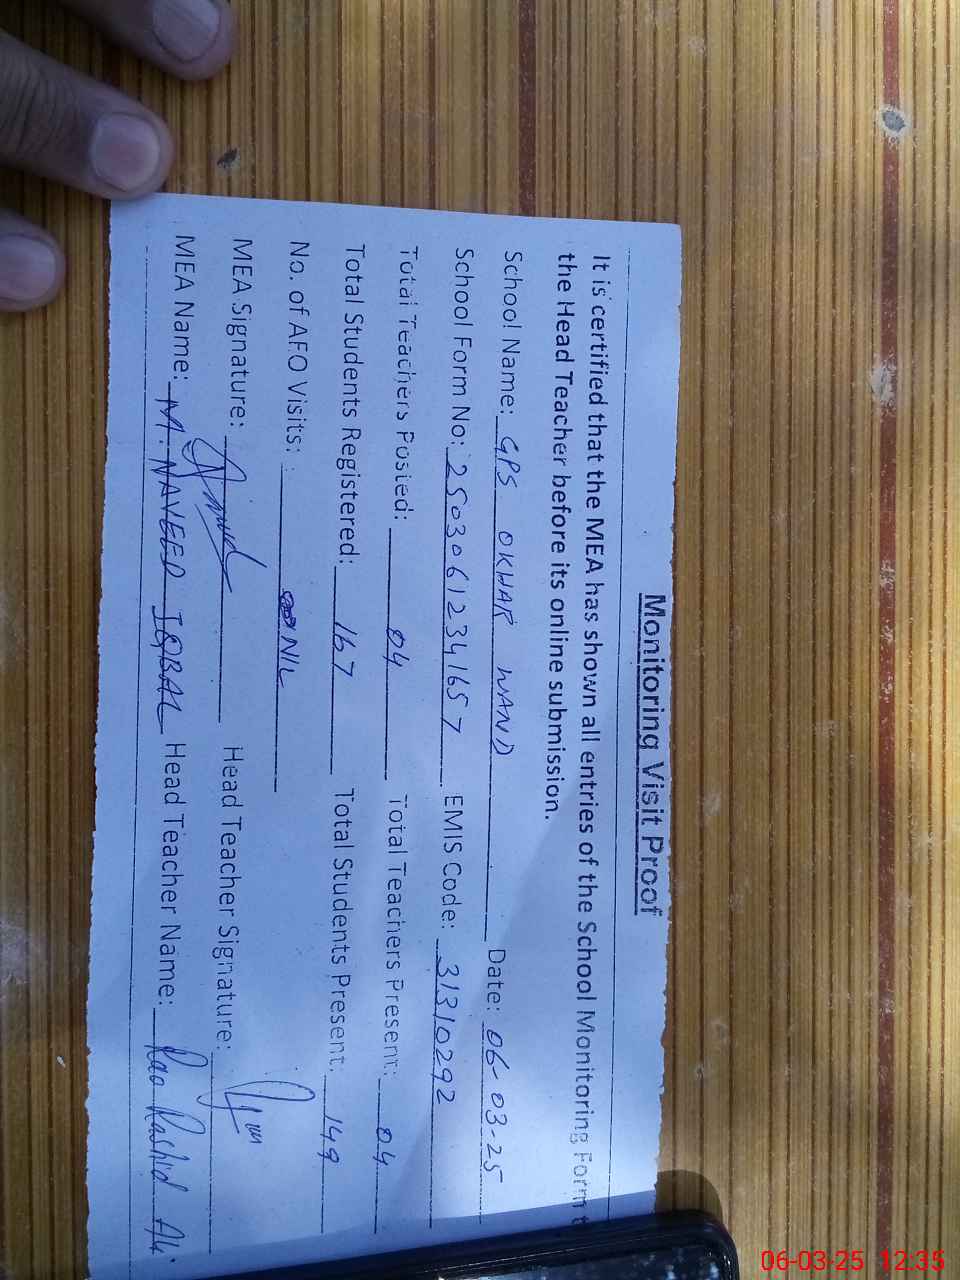 Monitoring Visit Proof
It is certified that the MEA has shown all entries of the School Monitoring Form t
the Head Teacher before its online submission.
School Name: GPS OKHAR WAND Date: 06-03-25
School Form No: 25030612341657 EMIS Code: 31310292
Total Teachers Posted: 04 Total Teachers Present: 04
Total Students Registered: 167 Total Students Present: 149
No. of AFO Visits: NIL
MEA Signature: Head Teacher Signature:
MEA Name: M. NAVEED IQBAL Head Teacher Name: Rao Rashid Ali
06-03-25 12:35